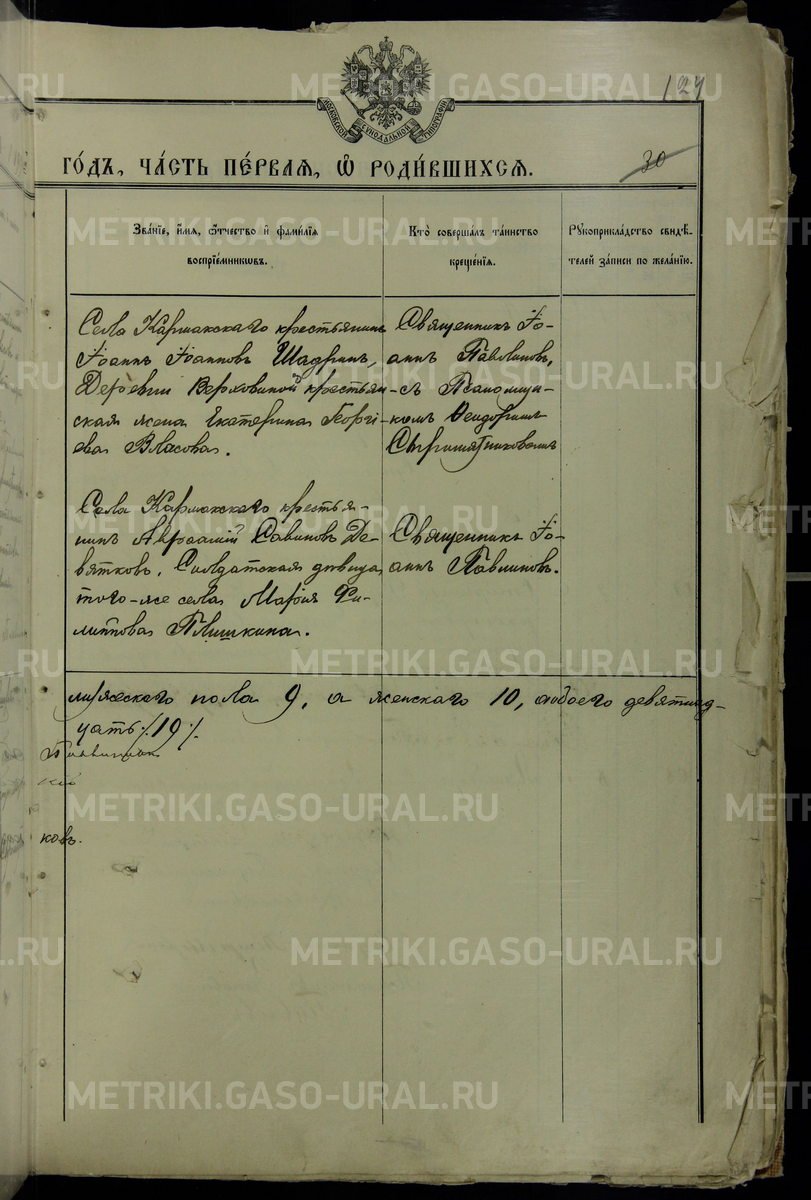 127
МОСКОВСКОЙ СѴНОДАЛЬНОЙ ТИПОГРАФІИ
30
ГО́ДЪ, ЧА́СТЬ ПЕ́РВАЯ, Ѡ҆ РОДИ́ВШИХСЯ.
Зва́нїе, и҆́мя, ѻ҆́тчество и҆ фами́лїя
воспрїе́мникѡвъ.
Кто̀ соверша́лъ та́инство
креще́нїя.
Рꙋкоприкла́дство свидѣ́-
телей за́писи по жела́нїю.
Села Кармакскаго крестьянинъ
Іоаннъ Іоанновъ Шадринъ,
Деревни Верховиной крестьян-
ская жена Екатерина Георгі-
ева Власова.
Священникъ Іо-
аннъ Павлиновъ,
съ Псаломщи-
комъ Ѳеодоромъ
Сыромятниковымъ
Села Кармакскаго крестья-
нинъ Авраамій Саввиновъ Де-
вятковъ. Солдатская дѣвица
того-же села Марія Фи-
липпова Плишкина.
Священникъ Іо-
аннъ Павлиновъ.
мужескаго пола 9, а женскаго 10, а обоего девятнад-
цать /19/.
ковъ.
METRIKI.GASO-URAL.RU